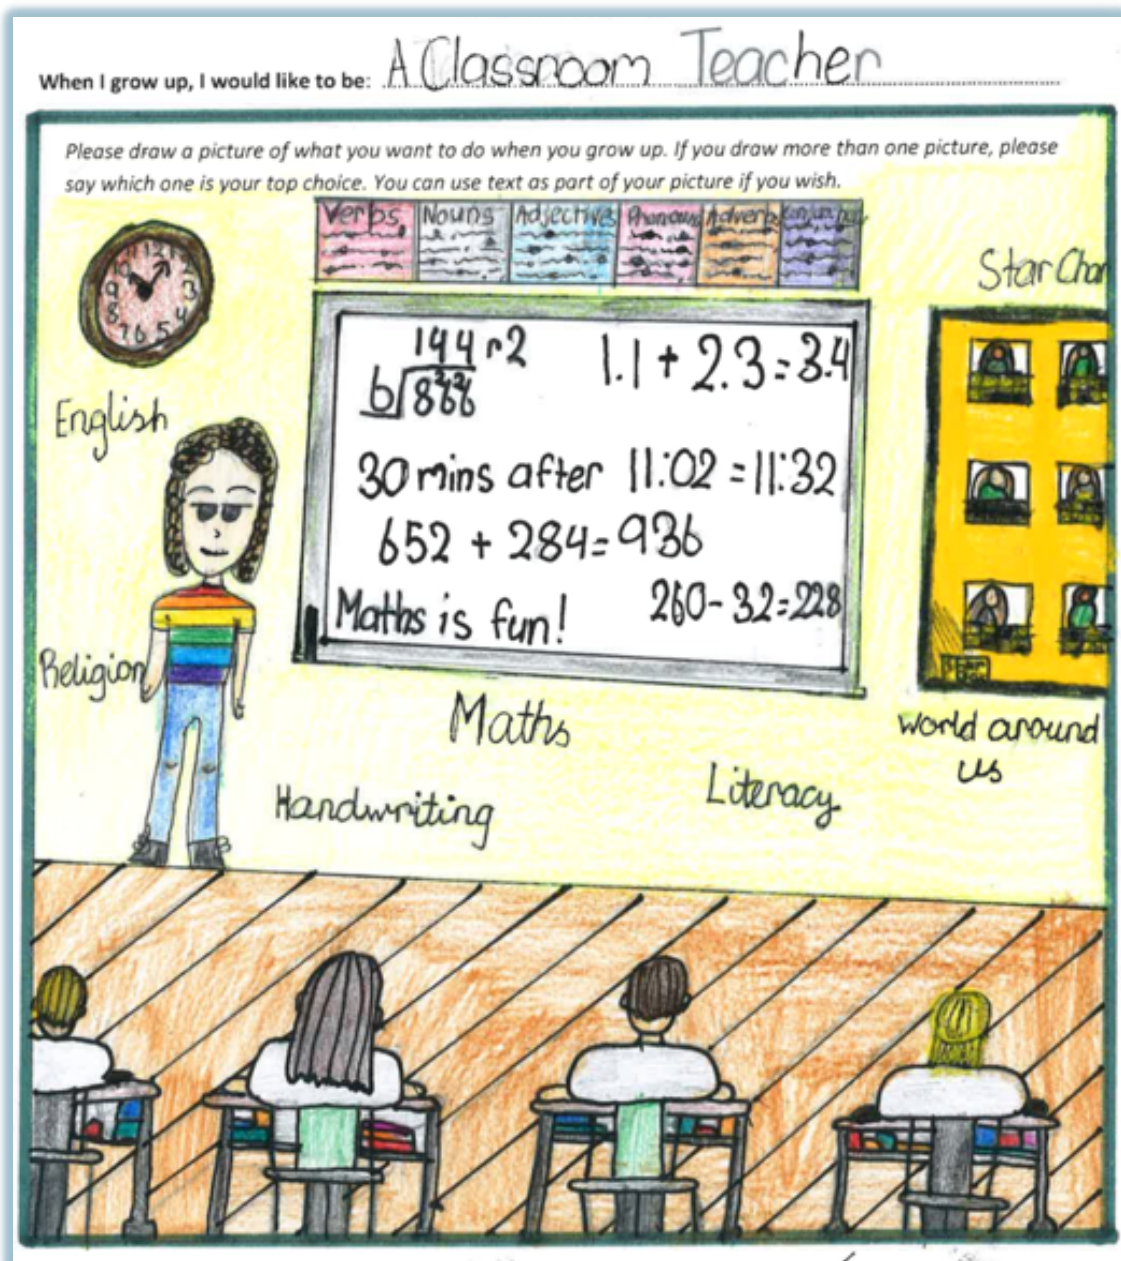 When I grow up, I would like to be: A Classroom Teacher
Please draw a picture of what you want to do when you grow up. If you draw more than one picture, please
say which one is your top choice. You can use text as part of your picture if you wish.
Verbs Nouns Adjectives Phonouns Adverbs
12
9 3
8 4
7 6 5
Star Char
144 r2
6 888
1.1 + 2.3 = 3.4
English
30 mins after 11:02 = 11:32
652 + 284 = 936
Maths is fun! 260 - 32 = 228
Religion
Maths
World around
us
Handwriting
Literacy